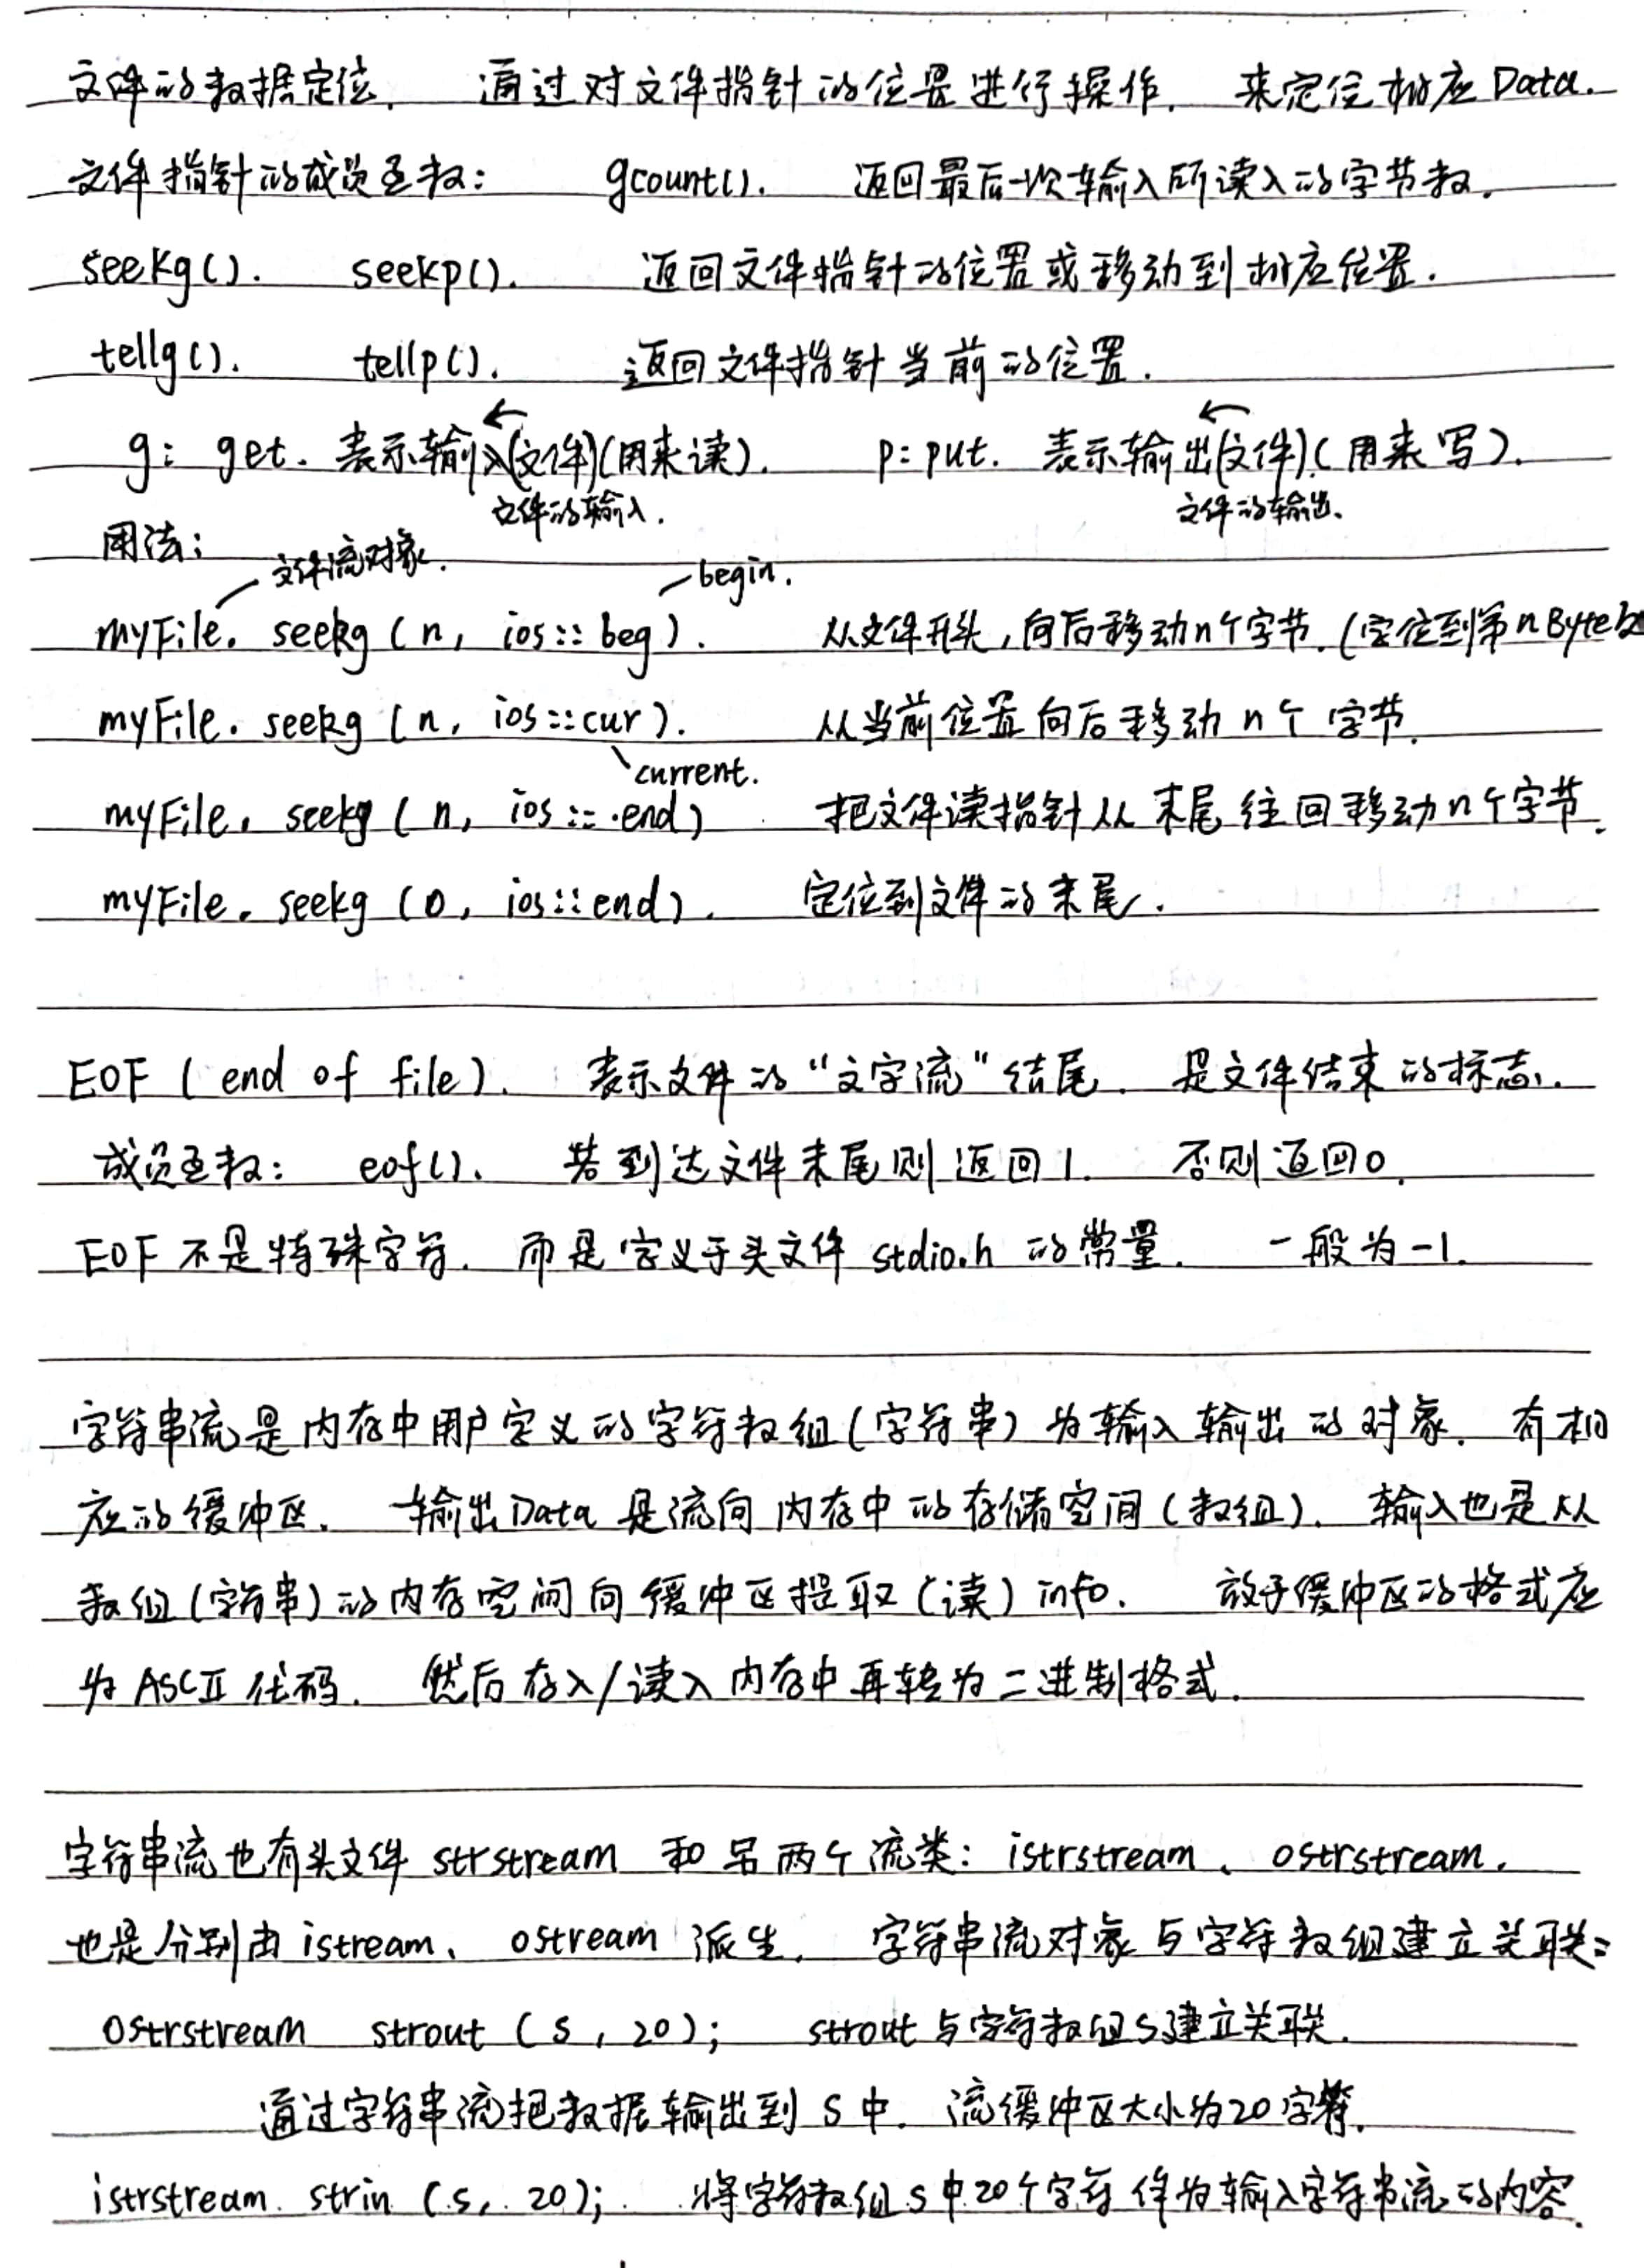 文件的数据定位. 通过对文件指针的位置进行操作. 来定位相应Data.
文件指针的成员函数: gcount(). 返回最后一次输入所读入的字节数.
seekg(). seekp(). 返回文件指针的位置或移动到相应位置.
tellg(). tellp(). 返回文件指针当前的位置.
g: get. 表示输入(文件)(用来读). p: put. 表示输出(文件)(用来写).
文件的输入. 文件的输出.
用法:
文件流对象. begin.
myFile. seekg (n, ios::beg). 从文件开头,向后移动n个字节.(定位到第nByte处
myFile. seekg (n, ios::cur). 从当前位置向后移动n个字节.
current.
myFile. seekg (n, ios::end) 把文件读指针从末尾往回移动n个字节.
myFile. seekg (0, ios::end). 定位到文件的末尾.
EOF (end of file). 表示文件的“文字流”结尾. 是文件结束的标志.
成员函数: eof(). 若到达文件末尾则返回1. 否则返回0.
EOF不是特殊字符. 而是定义于头文件stdio.h的常量. 一般为-1.
字符串流是内存中用户定义的字符数组(字符串)为输入输出的对象. 有相
应的缓冲区. 输出Data是流向内存中的存储空间(数组). 输入也是从
数组(字符串)的内存空间向缓冲区提取(读)info. 放于缓冲区的格式应
为ASCII代码. 然后存入/读入内存中再转为二进制格式.
字符串流也有头文件strstream和另两个流类: istrstream、ostrstream.
也是分别由istream、ostream派生. 字符串流对象与字符数组建立关联:
ostrstream strout (s, 20); strout与字符数组s建立关联.
通过字符串流把数据输出到s中. 流缓冲区大小为20字符.
istrstream strin (s, 20); 将字符数组s中20个字符作为输入字符串流的内容.